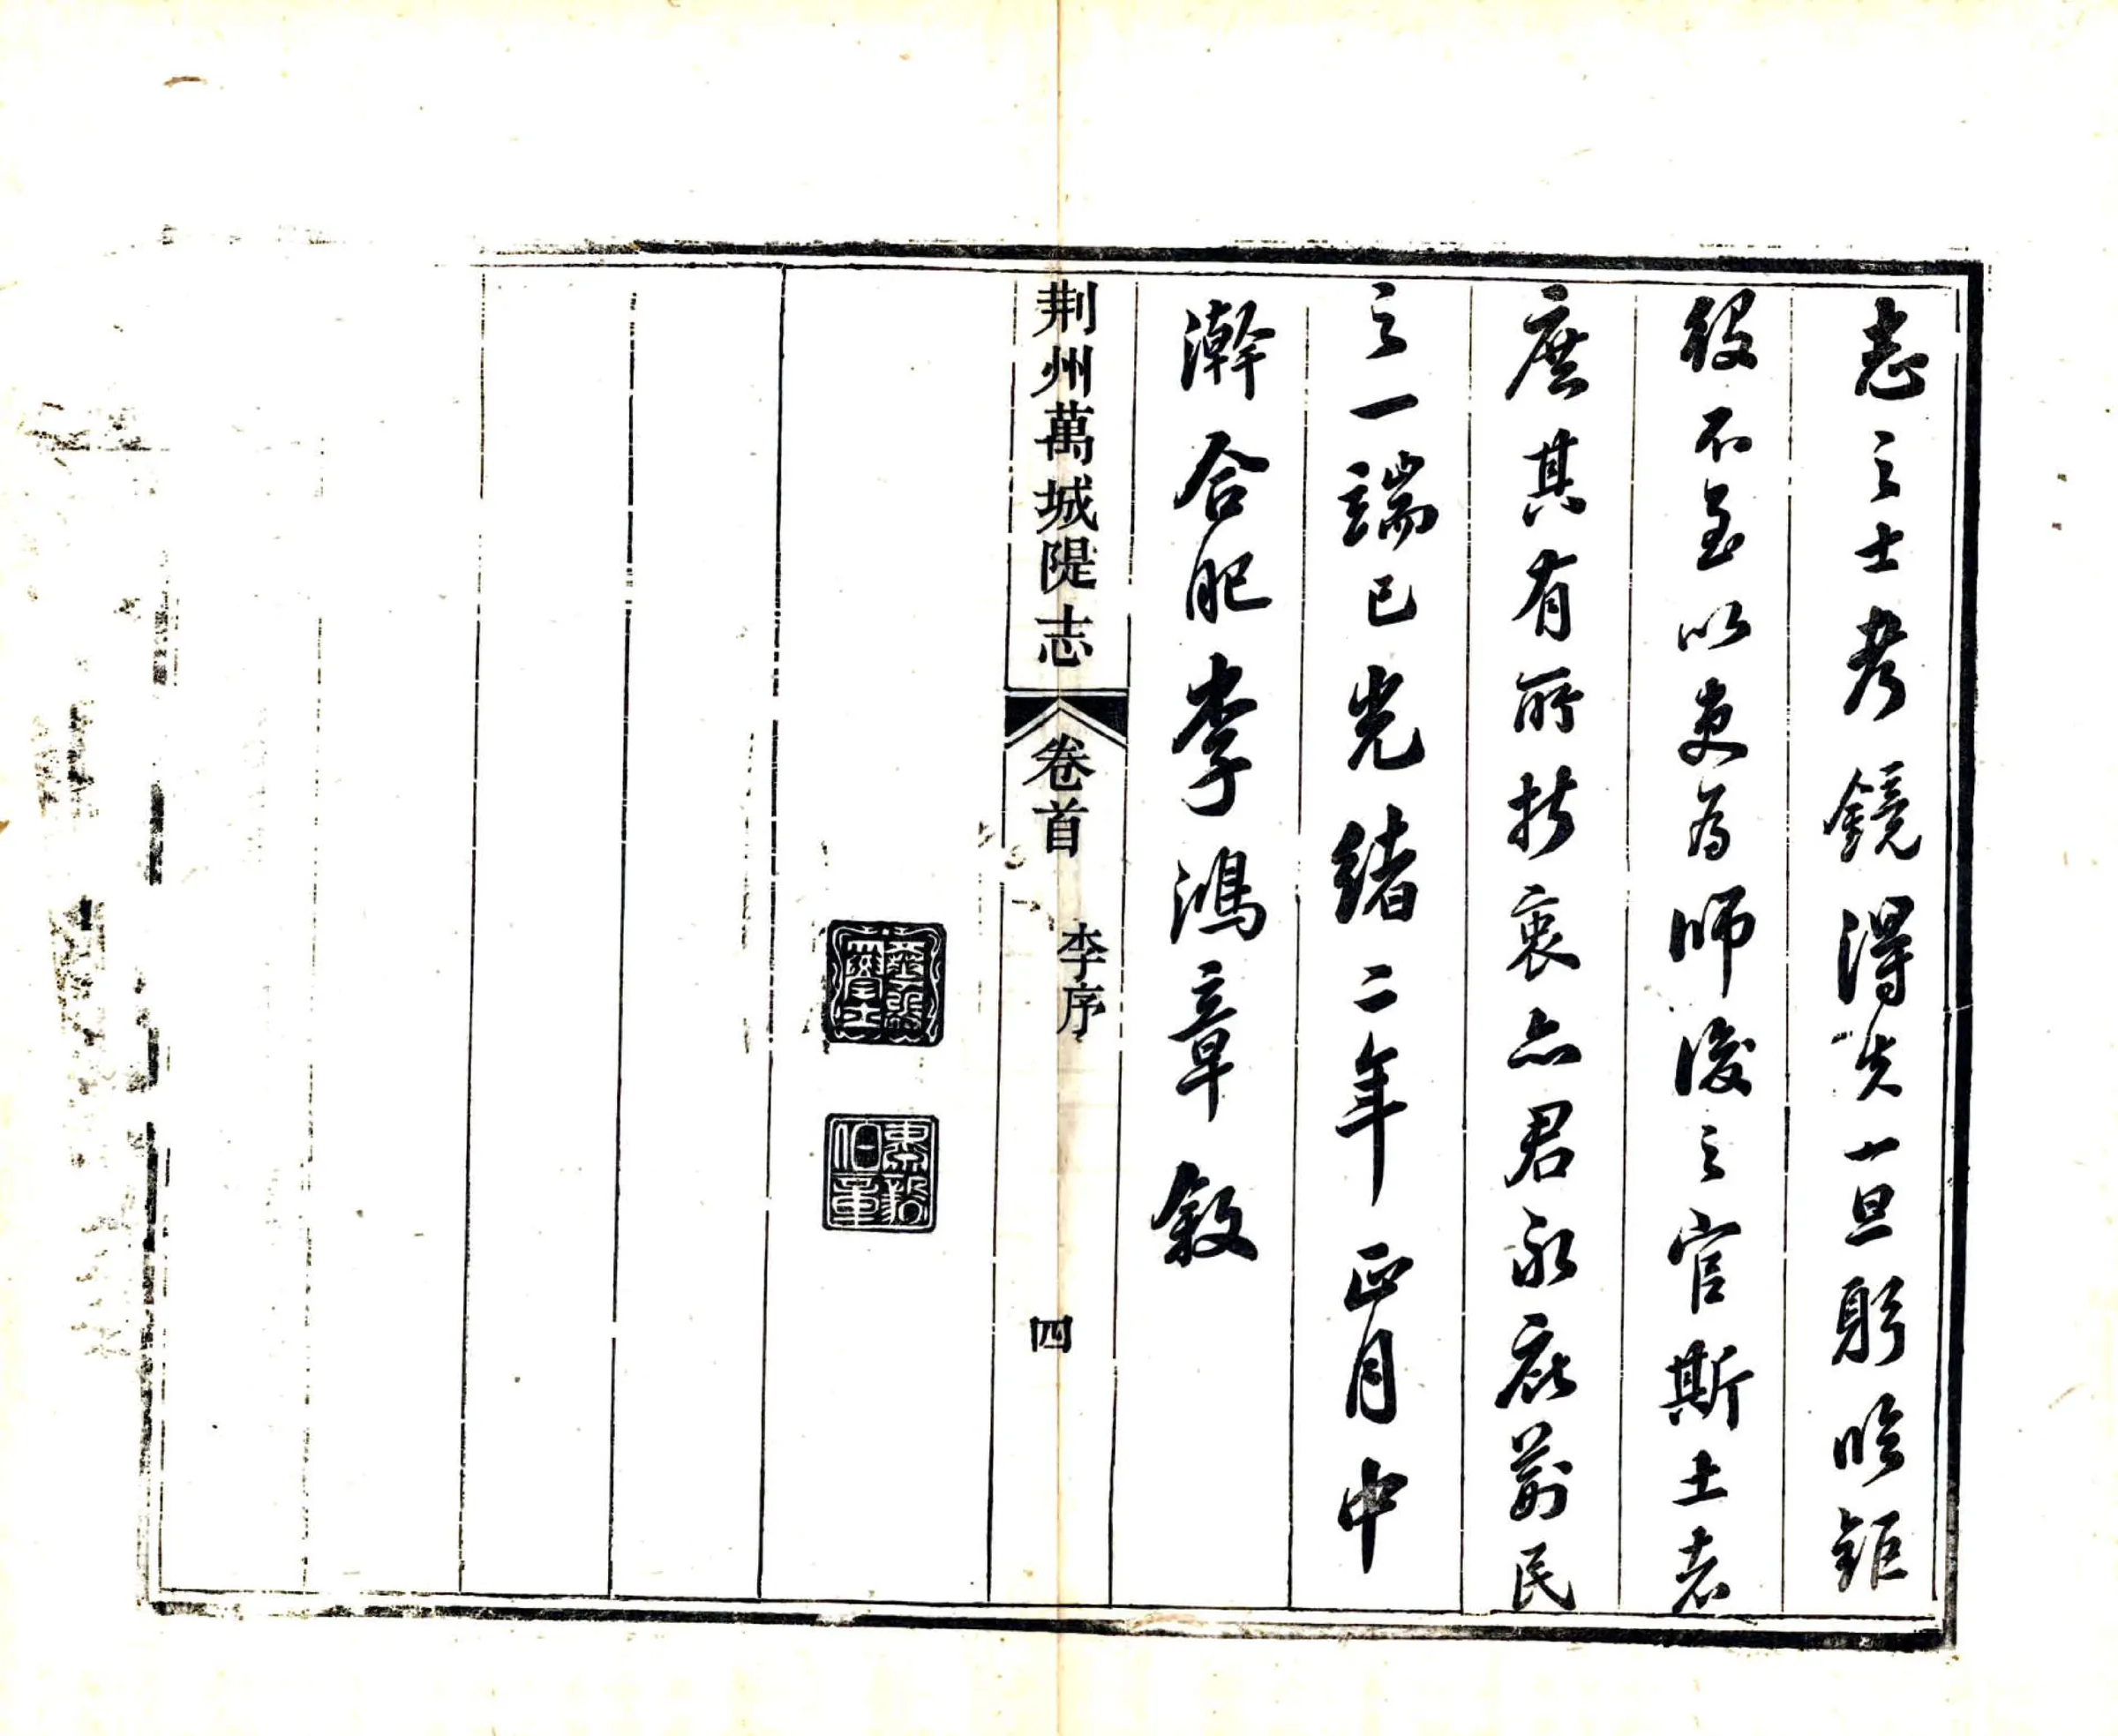 志之士考鏡得失一旦躬臨鉅
役不至以吏為師後之官斯土者
庶其有所折衷亦君永庇荊民
之一端已光緒二年正月中
澣合肥李鴻章敘
荆州萬城隄志
卷首
李序
四